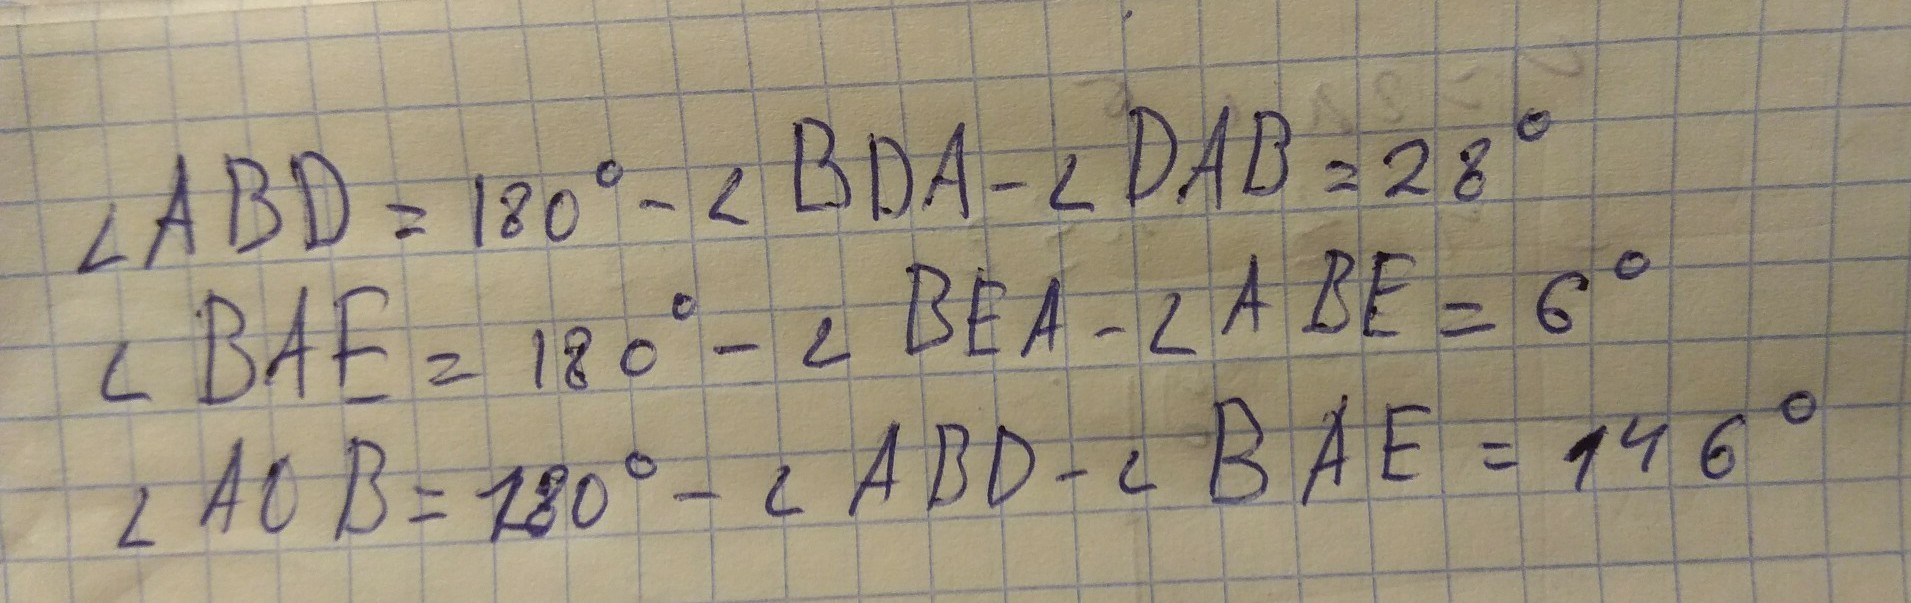 ∠ABD = 180° - ∠BDA - ∠DAB = 28°
∠BAE = 180° - ∠BEA - ∠ABE = 6°
∠AOB = 180° - ∠ABD - ∠BAE = 146°